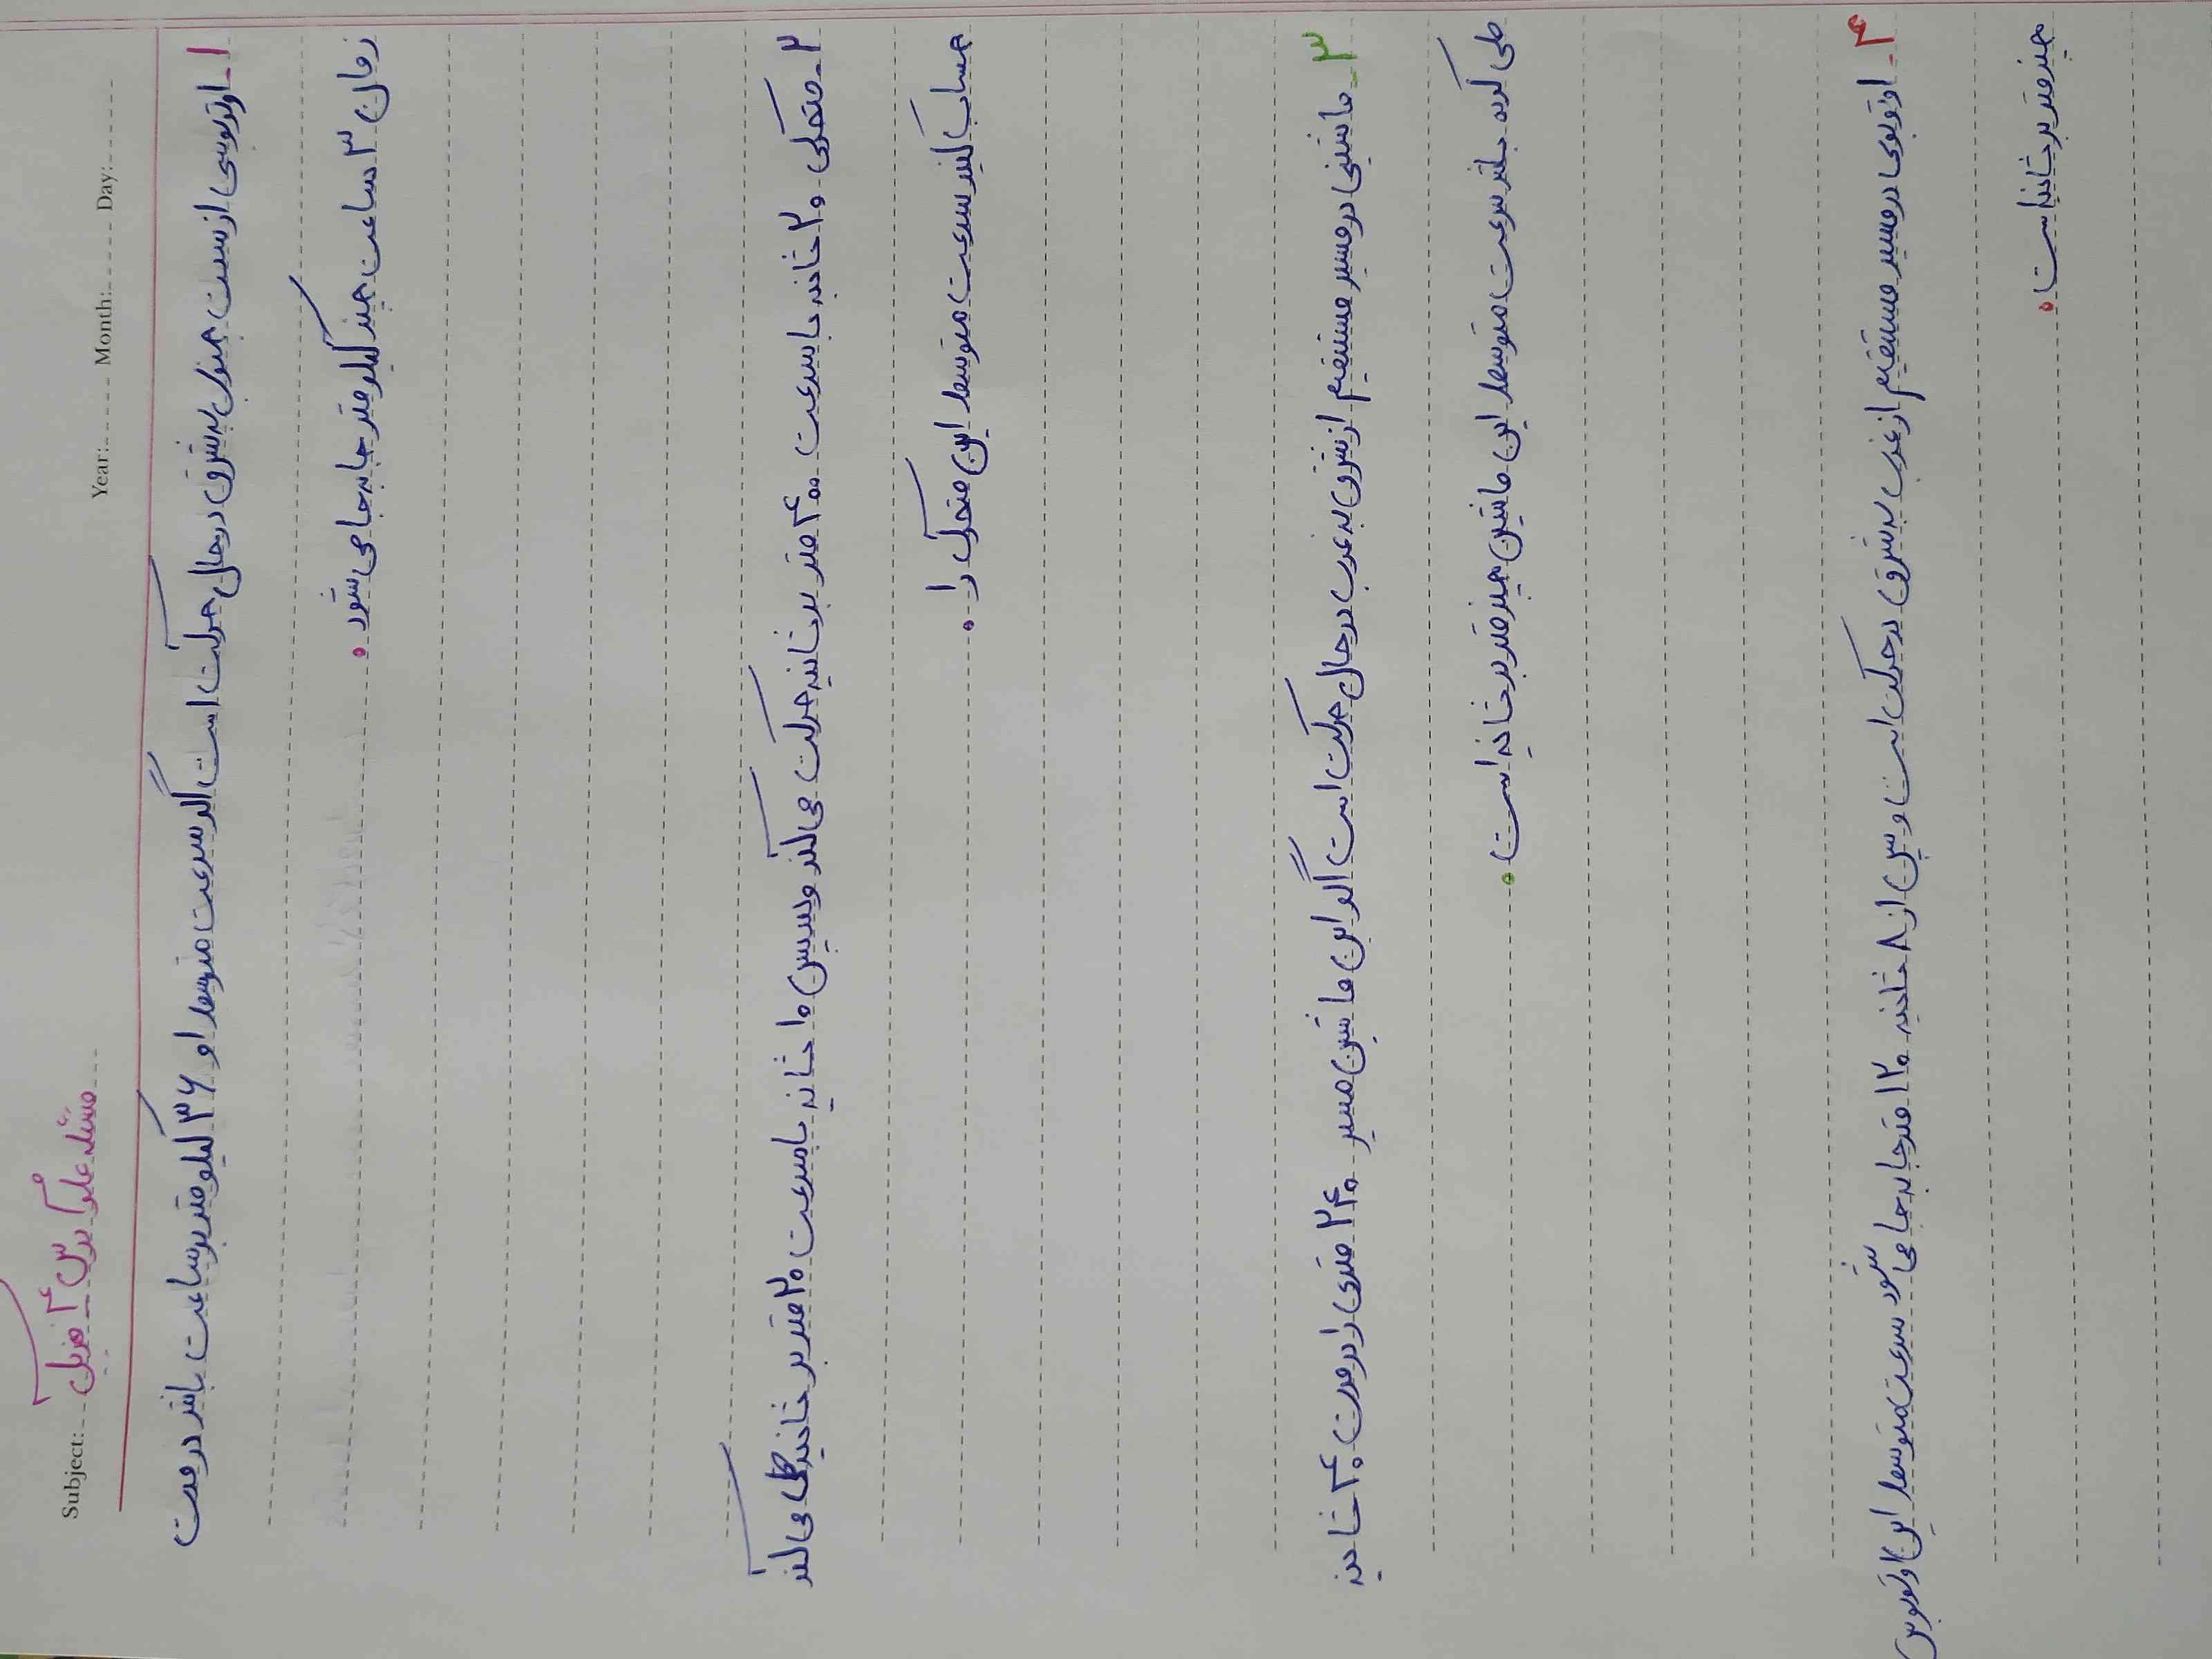 Subject: مسئله علوم درس ۴ فیزیک Year: Month: Day:
۱- اتوبوسی از سمت جنوب به شرق در حال حرکت است اگر سرعت متوسط او ۳۶ کیلومتر بر ساعت باشد در مدت
زمان ۳ ساعت چند کیلومتر جابه جا می شود.
۲- متحرکی ۲۰ ثانیه با سرعت ۴۰۰ متر بر ثانیه حرکت می کند و سپس ۱۰ ثانیه با سرعت ۲۰ متر بر ثانیه طی می کند
حساب کنید سرعت متوسط این متحرک را.
۳- ماشینی در مسیر مستقیم از شرق به غرب در حال حرکت است اگر این ماشین مسیر ۲۴۰ متری را در مدت ۴۰ ثانیه
طی کرده باشد سرعت متوسط این ماشین چند متر بر ثانیه است.
۴- اتوبوسی در مسیر مستقیم از غرب به شرق در حرکت است و پس از ۸ ثانیه ۱۲۰ متر جا به جا می شود سرعت متوسط این اتوبوس
چند متر بر ثانیه است.